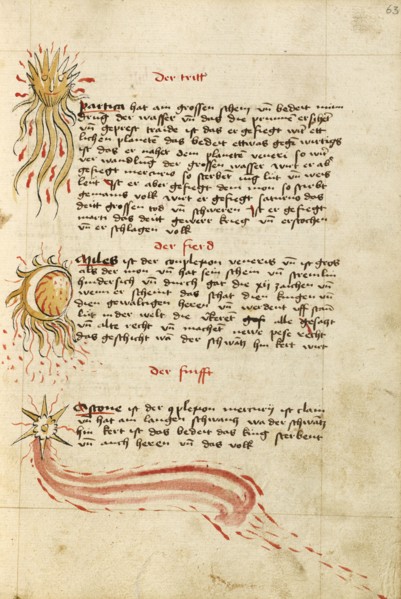 63
Der tritt
Partica hat am grossen schein vn̄ bedeit
der wasser vn̄ das die prunne
vn̄ geprest traide ist das er gefiegt wirt ett
lichen planete das bedeit ettwas
ist das er naher dem planete veneri so wirt
der wandlung der grossen wasser wirt er ab
gefiegt mercurio so sterben iūg lüt vn̄ weis
leüt Ist er aber gefiegt dem mon so sterbt
gemains volk wirt er gefiegt saturno das
deüt grossen tod vn̄ schweren Ist er gefiegt
marti das deüt gewerr krieg vn̄ erstochen
vn̄ er schlagen volk
Der fierd
Miles ist der conplexion veneris vn̄ ist gros
als der mon vn̄ hat sein schein vn̄ streimlin
hindersich vn̄ durch gat die xij zaichen vn̄
wenn er scheint das schat dien kingen vn̄
dien gewaltigen heren vn̄ werdent uff stan
lüt in der welt die alle gesatzt
vn̄ alte recht vn̄ machet newe pese recht
das geschicht wa der schwātz hin kert wirt
Der finfft
Astone ist der 9plexion mercurij ist clain
vn̄ hat am langen schwantz wa der schwātz
hin kert ist das bedeit das king sterbent
vn̄ auch heren vn̄ das volk